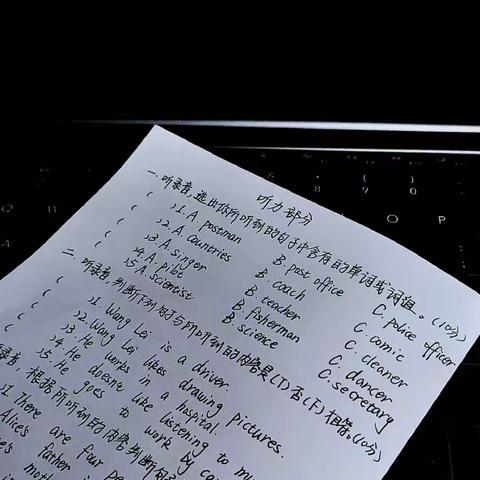 听力部分
一. 听录音,选出你所听到的句子中含有的单词或词组。(10分)
( )1. A. postman B. post office C. police officer
( )2. A. countries B. coach C. comic
( )3. A. singer B. teacher C. cleaner
( )4. A. pilot B. fisherman C. dancer
( )5. A. scientist B. science C. secretary
二. 听录音,判断下列句子与所听到的内容是(T)否(F)相符。(10分)
( )1. Wang Lei is a driver.
( )2. Wang Lei likes drawing pictures.
( )3. He works in a hospital.
( )4. He doesn't like listening to
( )5. He goes to work by
录音,根据所听到的内容判断句
1. There are four
Alice's father